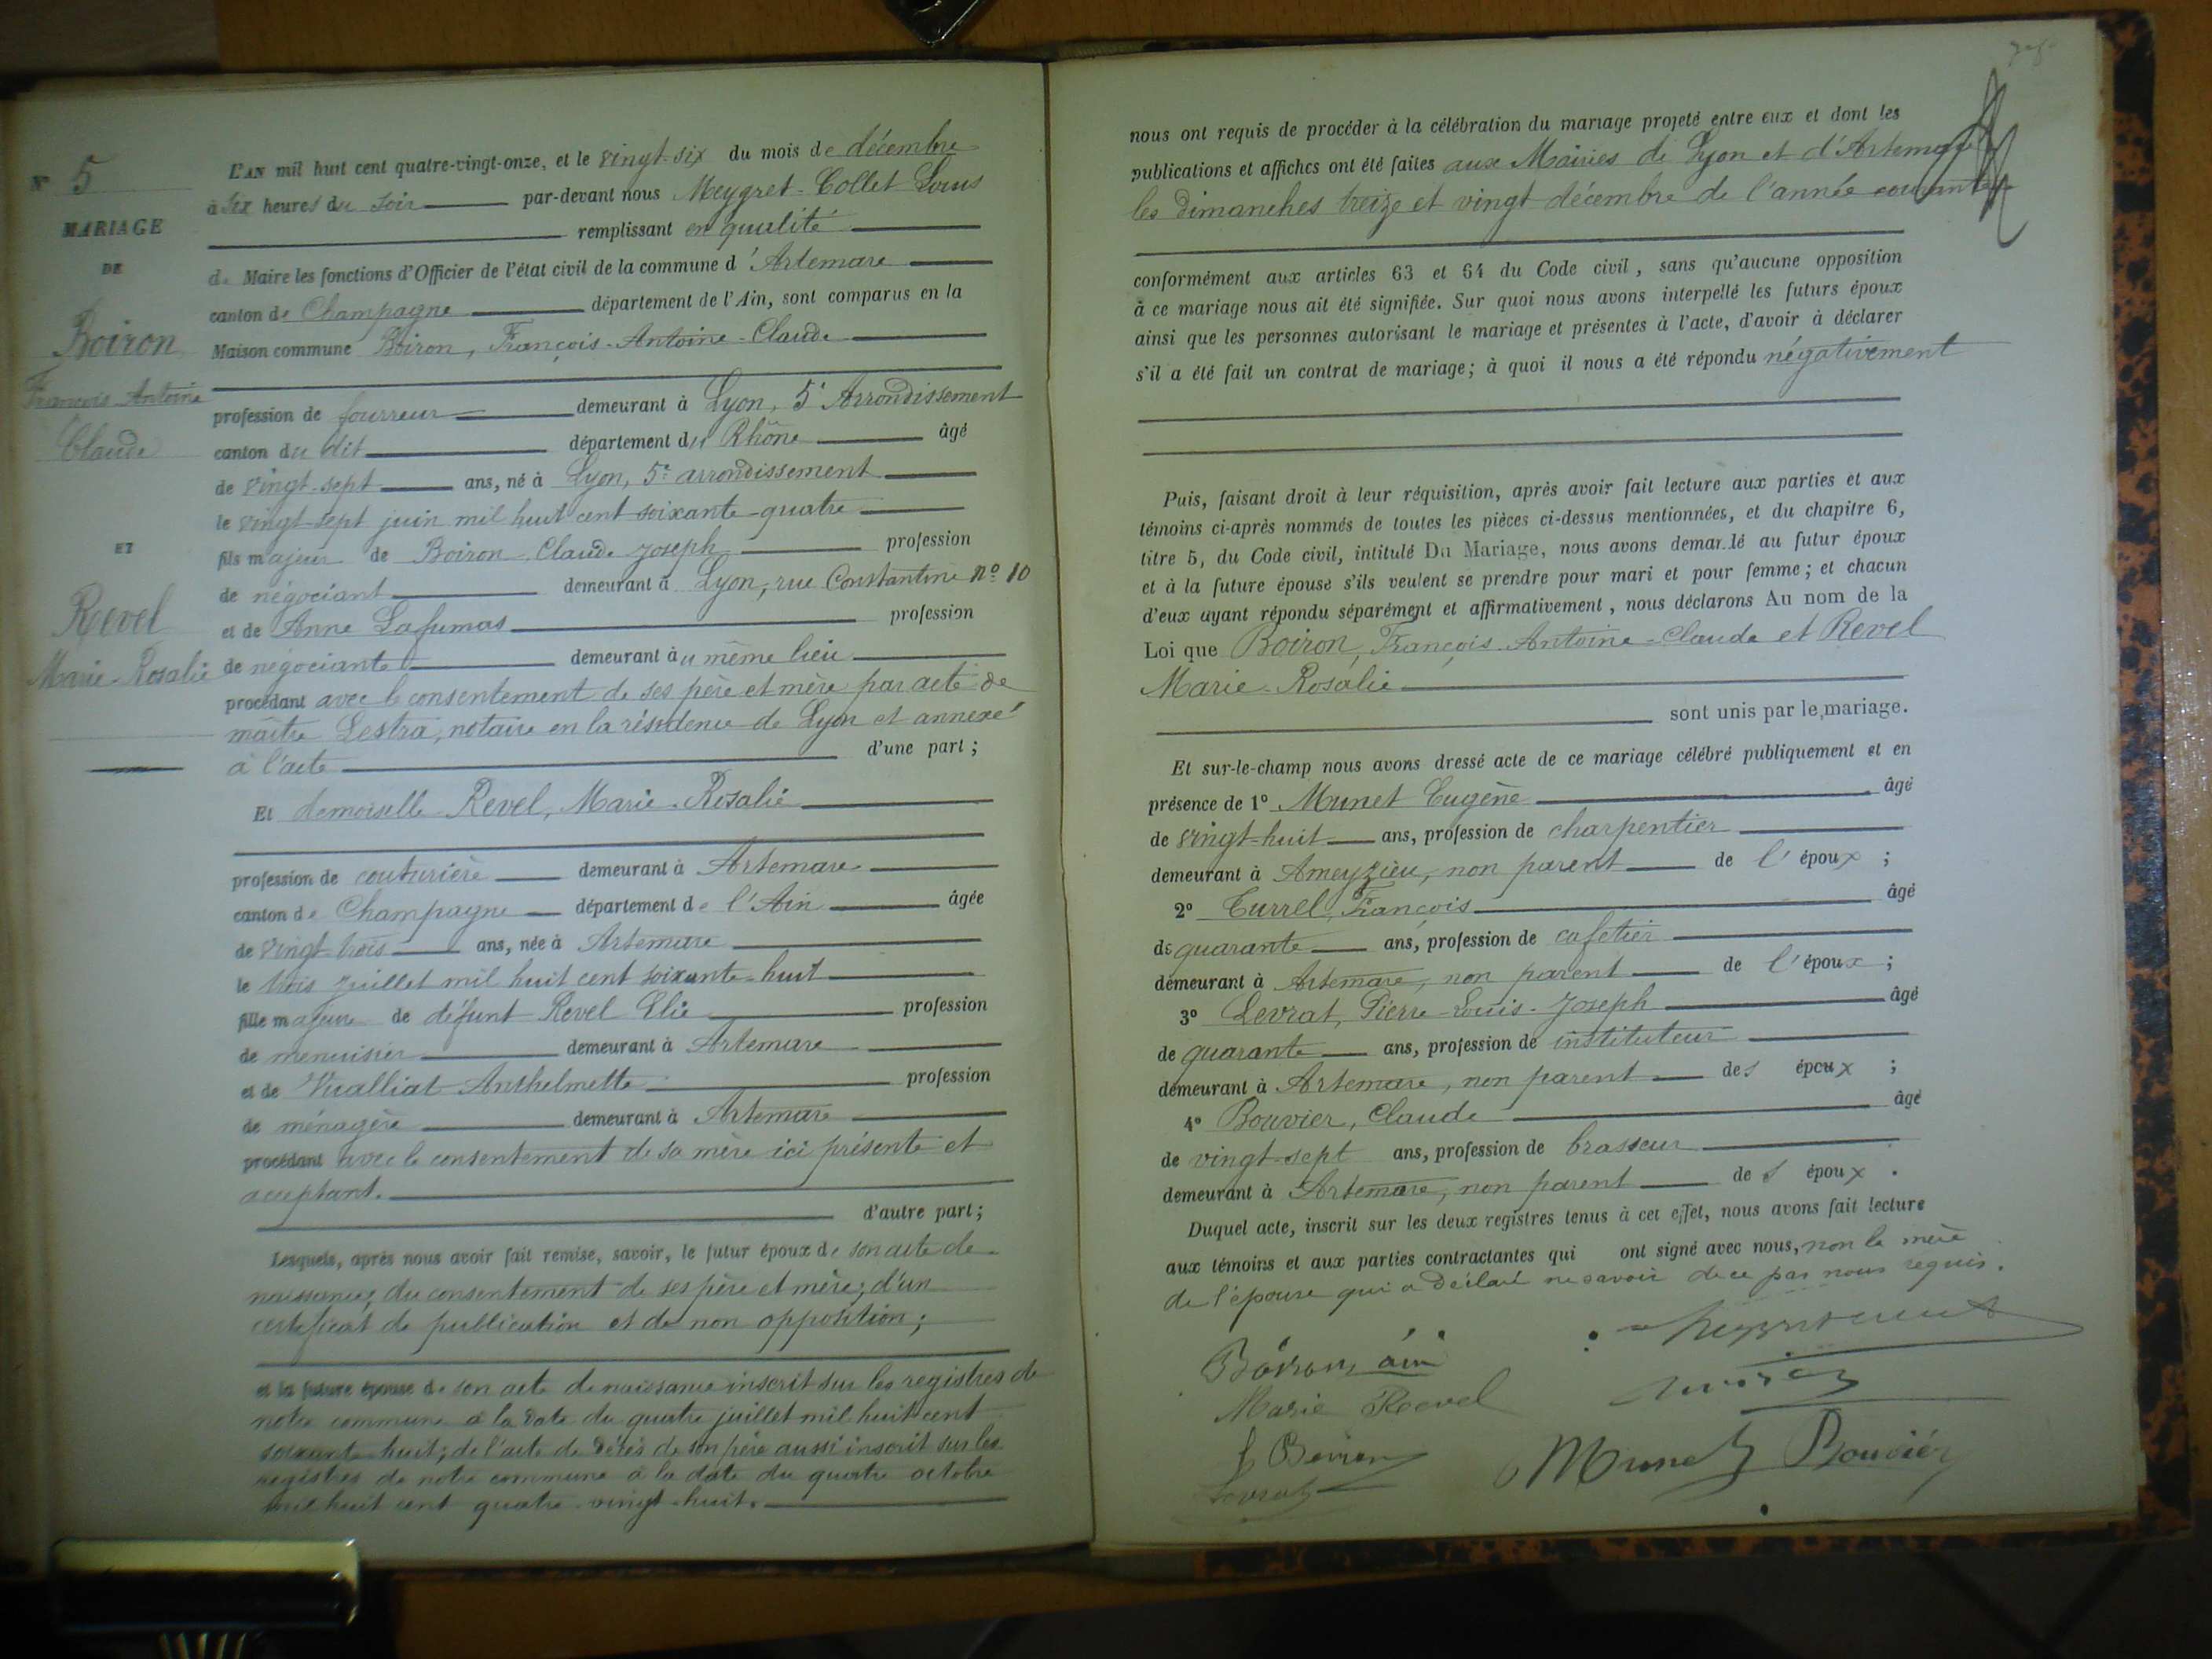 N° 5
MARIAGE
DE
Boiron
François Antoine
Claude
ET
Revel
Marie-Rosalie
L'AN mil huit cent quatre-vingt-onze, et le vingt-six du mois de décembre
à six heures du soir par-devant nous Meygret-Collet Louis
remplissant en qualité
de Maire les fonctions d'Officier de l'état civil de la commune d'Artemare
canton de Champagne département de l'Ain, sont comparus en la
Maison commune Boiron, François-Antoine-Claude
profession de fourreur demeurant à Lyon, 5e Arrondissement
canton du dit département du Rhône âgé
de vingt-sept ans, né à Lyon, 5e arrondissement
le vingt-sept juin mil huit cent soixante-quatre
fils majeur de Boiron Claude Joseph profession
de négociant demeurant à Lyon, rue Constantine n° 10
et de Anne Lafumas profession
de négociante demeurant au même lieu
procédant avec le consentement de ses père et mère par acte de
maître Lestra, notaire en la résidence de Lyon et annexé
à l'acte d'une part;
Et demoiselle Revel, Marie-Rosalie
profession de couturière demeurant à Artemare
canton de Champagne département de l'Ain âgée
de vingt-trois ans, née à Artemare
le trois juillet mil huit cent soixante-huit
fille majeure de défunt Revel Elie profession
de menuisier demeurant à Artemare
et de Vualliat Anthelmette profession
de ménagère demeurant à Artemare
procédant avec le consentement de sa mère ici présente et
acceptant.
d'autre part;
Lesquels, après nous avoir fait remise, savoir, le futur époux de son acte de
naissance, du consentement de ses père et mère; d'un
certificat de publication et de non opposition;
et la future épouse de son acte de naissance inscrit sur les registres de
notre commune à la date du quatre juillet mil huit cent
soixante-huit; de l'acte de décès de son père aussi inscrit sur les
registres de notre commune à la date du quatre octobre
mil huit cent quatre-vingt-huit.
nous ont requis de procéder à la célébration du mariage projeté entre eux et dont les
publications et affiches ont été faites aux Mairies de Lyon et d'Artemare
les dimanches treize et vingt décembre de l'année courante
conformément aux articles 63 et 64 du Code civil, sans qu'aucune opposition
à ce mariage nous ait été signifiée. Sur quoi nous avons interpellé les futurs époux
ainsi que les personnes autorisant le mariage et présentes à l'acte, d'avoir à déclarer
s'il a été fait un contrat de mariage; à quoi il nous a été répondu négativement
Puis, faisant droit à leur réquisition, après avoir fait lecture aux parties et aux
témoins ci-après nommés de toutes les pièces ci-dessus mentionnées, et du chapitre 6,
titre 5, du Code civil, intitulé Du Mariage, nous avons demandé au futur époux
et à la future épouse s'ils veulent se prendre pour mari et pour femme; et chacun
d'eux ayant répondu séparément et affirmativement, nous déclarons Au nom de la
Loi que Boiron, François-Antoine-Claude et Revel
Marie-Rosalie
sont unis par le mariage.
Et sur-le-champ nous avons dressé acte de ce mariage célébré publiquement et en
présence de 1° Munet Eugène âgé
de vingt-huit ans, profession de charpentier
demeurant à Ameyzieu, non parent de l'époux;
2° Currel, François âgé
de quarante ans, profession de cafetier
demeurant à Artemare, non parent de l'époux;
3° Levrat, Pierre-Louis-Joseph âgé
de quarante ans, profession de instituteur
demeurant à Artemare, non parent des époux;
4° Bouvier, Claude âgé
de vingt-sept ans, profession de brasseur
demeurant à Artemare, non parent des époux.
Duquel acte, inscrit sur les deux registres tenus à cet effet, nous avons fait lecture
aux témoins et aux parties contractantes qui ont signé avec nous, non la mère
de l'épouse qui a déclaré ne savoir de ce par nous requis.
Boiron
Marie Revel
Boiron
Levrat
Munet Bouvier